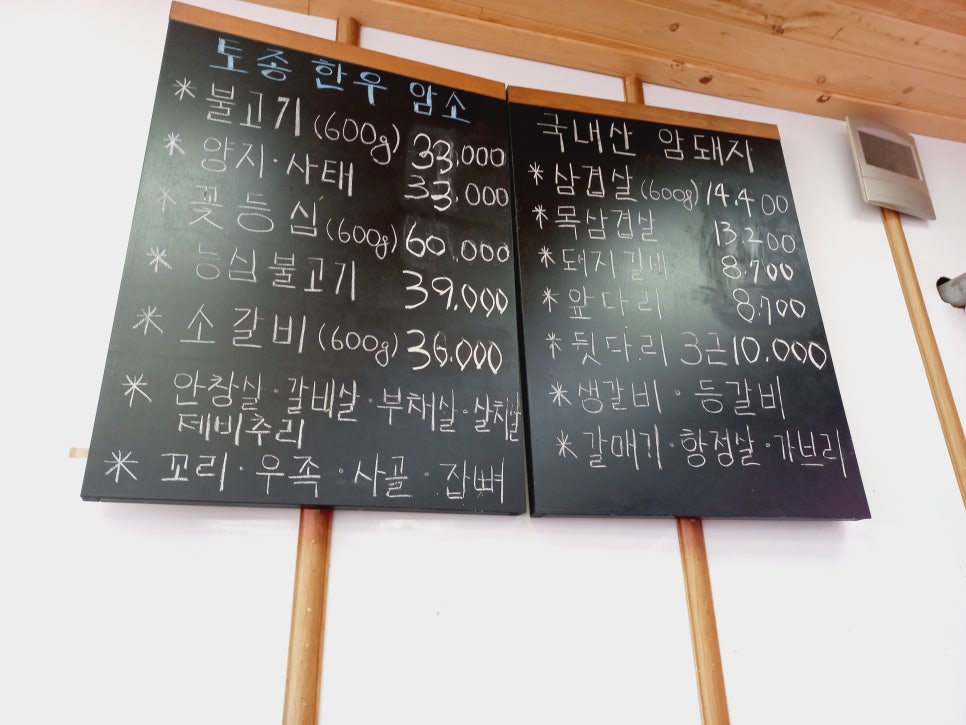 토종 한우 암소
* 불고기 (600g) 33,000
* 양지·사태 33,000
* 꽃등심 (600g) 60,000
* 등심불고기 39,000
* 소갈비 (600g) 36,000
* 안창살·갈비살·부채살·살채살
제비추리
* 꼬리·우족·사골·잡뼈
국내산 암돼지
* 삼겹살 (600g) 14.400
* 목삼겹살 13.200
* 돼지갈비 8.700
* 앞다리 8.700
* 뒷다리 3근 10.000
* 생갈비·등갈비
* 갈매기·항정살·가브리